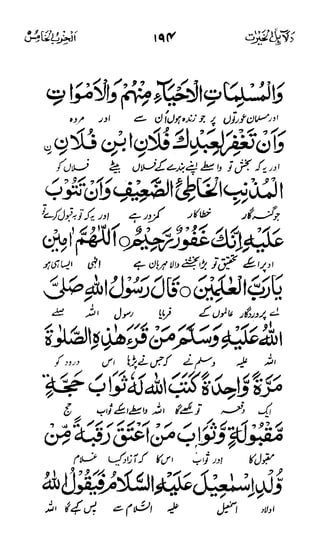 دلائل الخيرات ۱۹۴ الحزب الخامس
وَالْمُسْلِمَاتِ الْاَحْيَآءِ مِنْهُمْ وَالْاَمْوَاتِ
اور مسلمان عورتوں پر جو زندہ ہوں اُن سے اور مردہ
وَاَنْ تَغْفِرَ لِعَبْدِكَ فُلَانِ ابْنِ فُلَانِ
اور یہ کہ بخش تو واسطے اپنے بندے کے فلاں بیٹے فلاں کو
الْمُذْنِبِ الْخَاطِئِ الضَّعِيْفِ وَاَنْ تَتُوْبَ
جو گنہگار خطا کار کمزور ہے اور یہ کہ توبہ قبول کرے تو
عَلَيْهِ اِنَّكَ غَفُوْرٌ رَّحِيْمٌ ○ اَللّٰهُمَّ اٰمِيْنَ
اوپر اسکے تحقیق تو بڑا بخشنے والا مہربان ہے الٰہی ایسا ہی ہو
يَارَبَّ الْعٰلَمِيْنَ ○ قَالَ رَسُوْلُ اللّٰهِ صَلَّى
اے پروردگار عالموں کے فرمایا رسول اللہ صلے
اللّٰهُ عَلَيْهِ وَسَلَّمَ مَنْ قَرَءَ هٰذِهِ الصَّلٰوةَ
اللہ علیہ وسلم نے کہ جس نے پڑھا اس درود کو
مَرَّةً وَّاحِدَةً كَتَبَ اللّٰهُ لَهٗ ثَوَابَ حَجَّةٍ
ایک دفعہ تو لکھے گا اللہ واسطے اسکے ثواب حج
مَّقْبُوْلَةٍ وَّثَوَابَ مَنْ اَعْتَقَ رَقَبَةً مِّنْ
مقبول کا اور ثواب اس کا کہ آزاد کیا غلام
وُّلْدِ اِسْمٰعِيْلَ عَلَيْهِ السَّلَامُ فَيَقُوْلُ اللّٰهُ
اولاد اسمٰعیل علیہ السّلام سے پس کہے گا اللہ